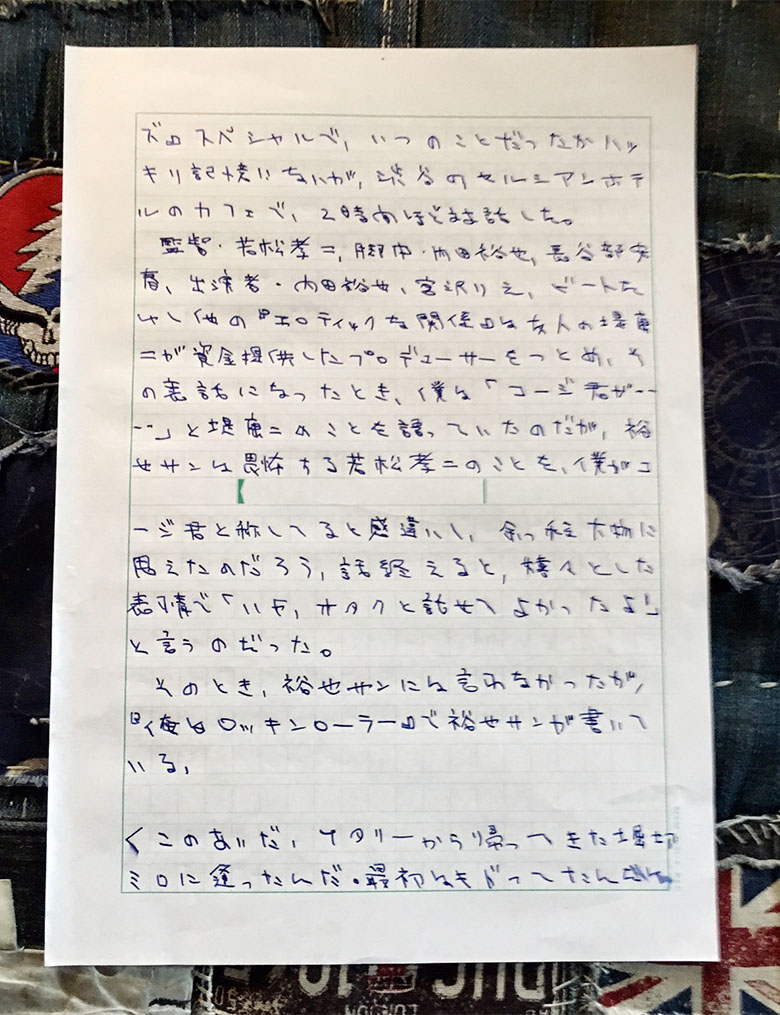 ズ』スペシャルで、いつのことだったかハッ
キリ記憶にないが、渋谷のセルシアンホテ
ルのカフェで、2時間ほどまま話した。
監督・若松孝二、脚本・内田裕也、長谷部安
春、出演者・内田裕也、宮沢りえ、ビートた
けし他の『エロティックな関係』は友人の堤康
二が資金提供したプロデューサーをつとめ、そ
の裏話になったとき、僕は「コージ君が‥
‥」と堤康二のことを語っていたのだが、裕
也サンは畏怖する若松孝二のことを、僕がコ
ージ君と称してると感違いし、余っ程大物に
思えたのだろう、話終えると、嬉々とした
表情で「いや、オタクと話せてよかったよ」
と言うのだった。
そのとき、裕也サンには言わなかったが、
『俺はロッキンローラー』で裕也サンが書いて
いる、
〈このあいだ、イタリーから帰ってきた堀切
ミロに逢ったんだ。最初はもどってたんだけ
DUC
LONDON